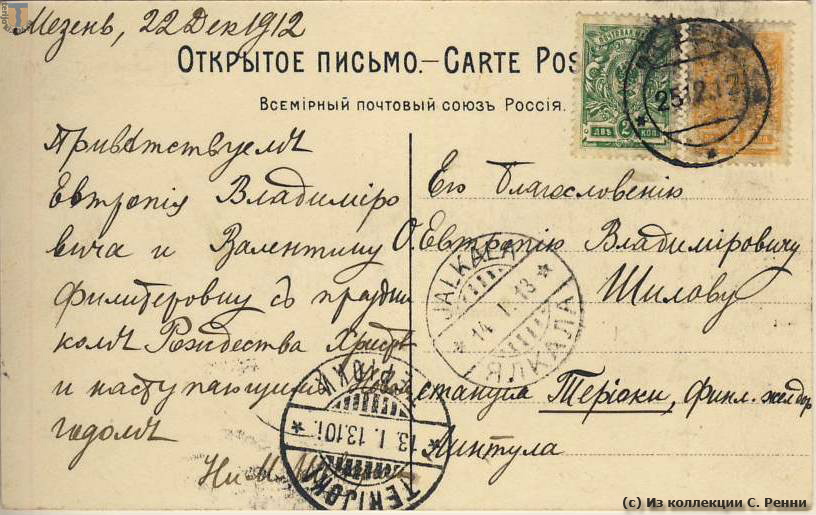 Мезень, 22 Дек 1912
ОТКРЫТОЕ ПИСЬМО.—CARTE POS
ВСЕМІРНЫЙ ПОЧТОВЫЙ СОЮЗЪ РОССІЯ.
ПОЧТОВАЯ МАРКА
ДВѢ 2 КОП.
25.12.12
Привѣтствуемъ
Евтропія Владиміро
вича и Валентину
Филитеровну съ праздни
комъ Рождества Христ
и наступающимъ Новым
годомъ
Его Благословенію
О. Евтропію Владиміровичу
Шилову
станция Теріоки, финл. желдор
Линтула
JALKALA
14. I. 13
ЯЛКАЛА
ТЕРІОКИ
13. I. 13.10і.
TERIJOKI
(c) Из коллекции С. Ренни